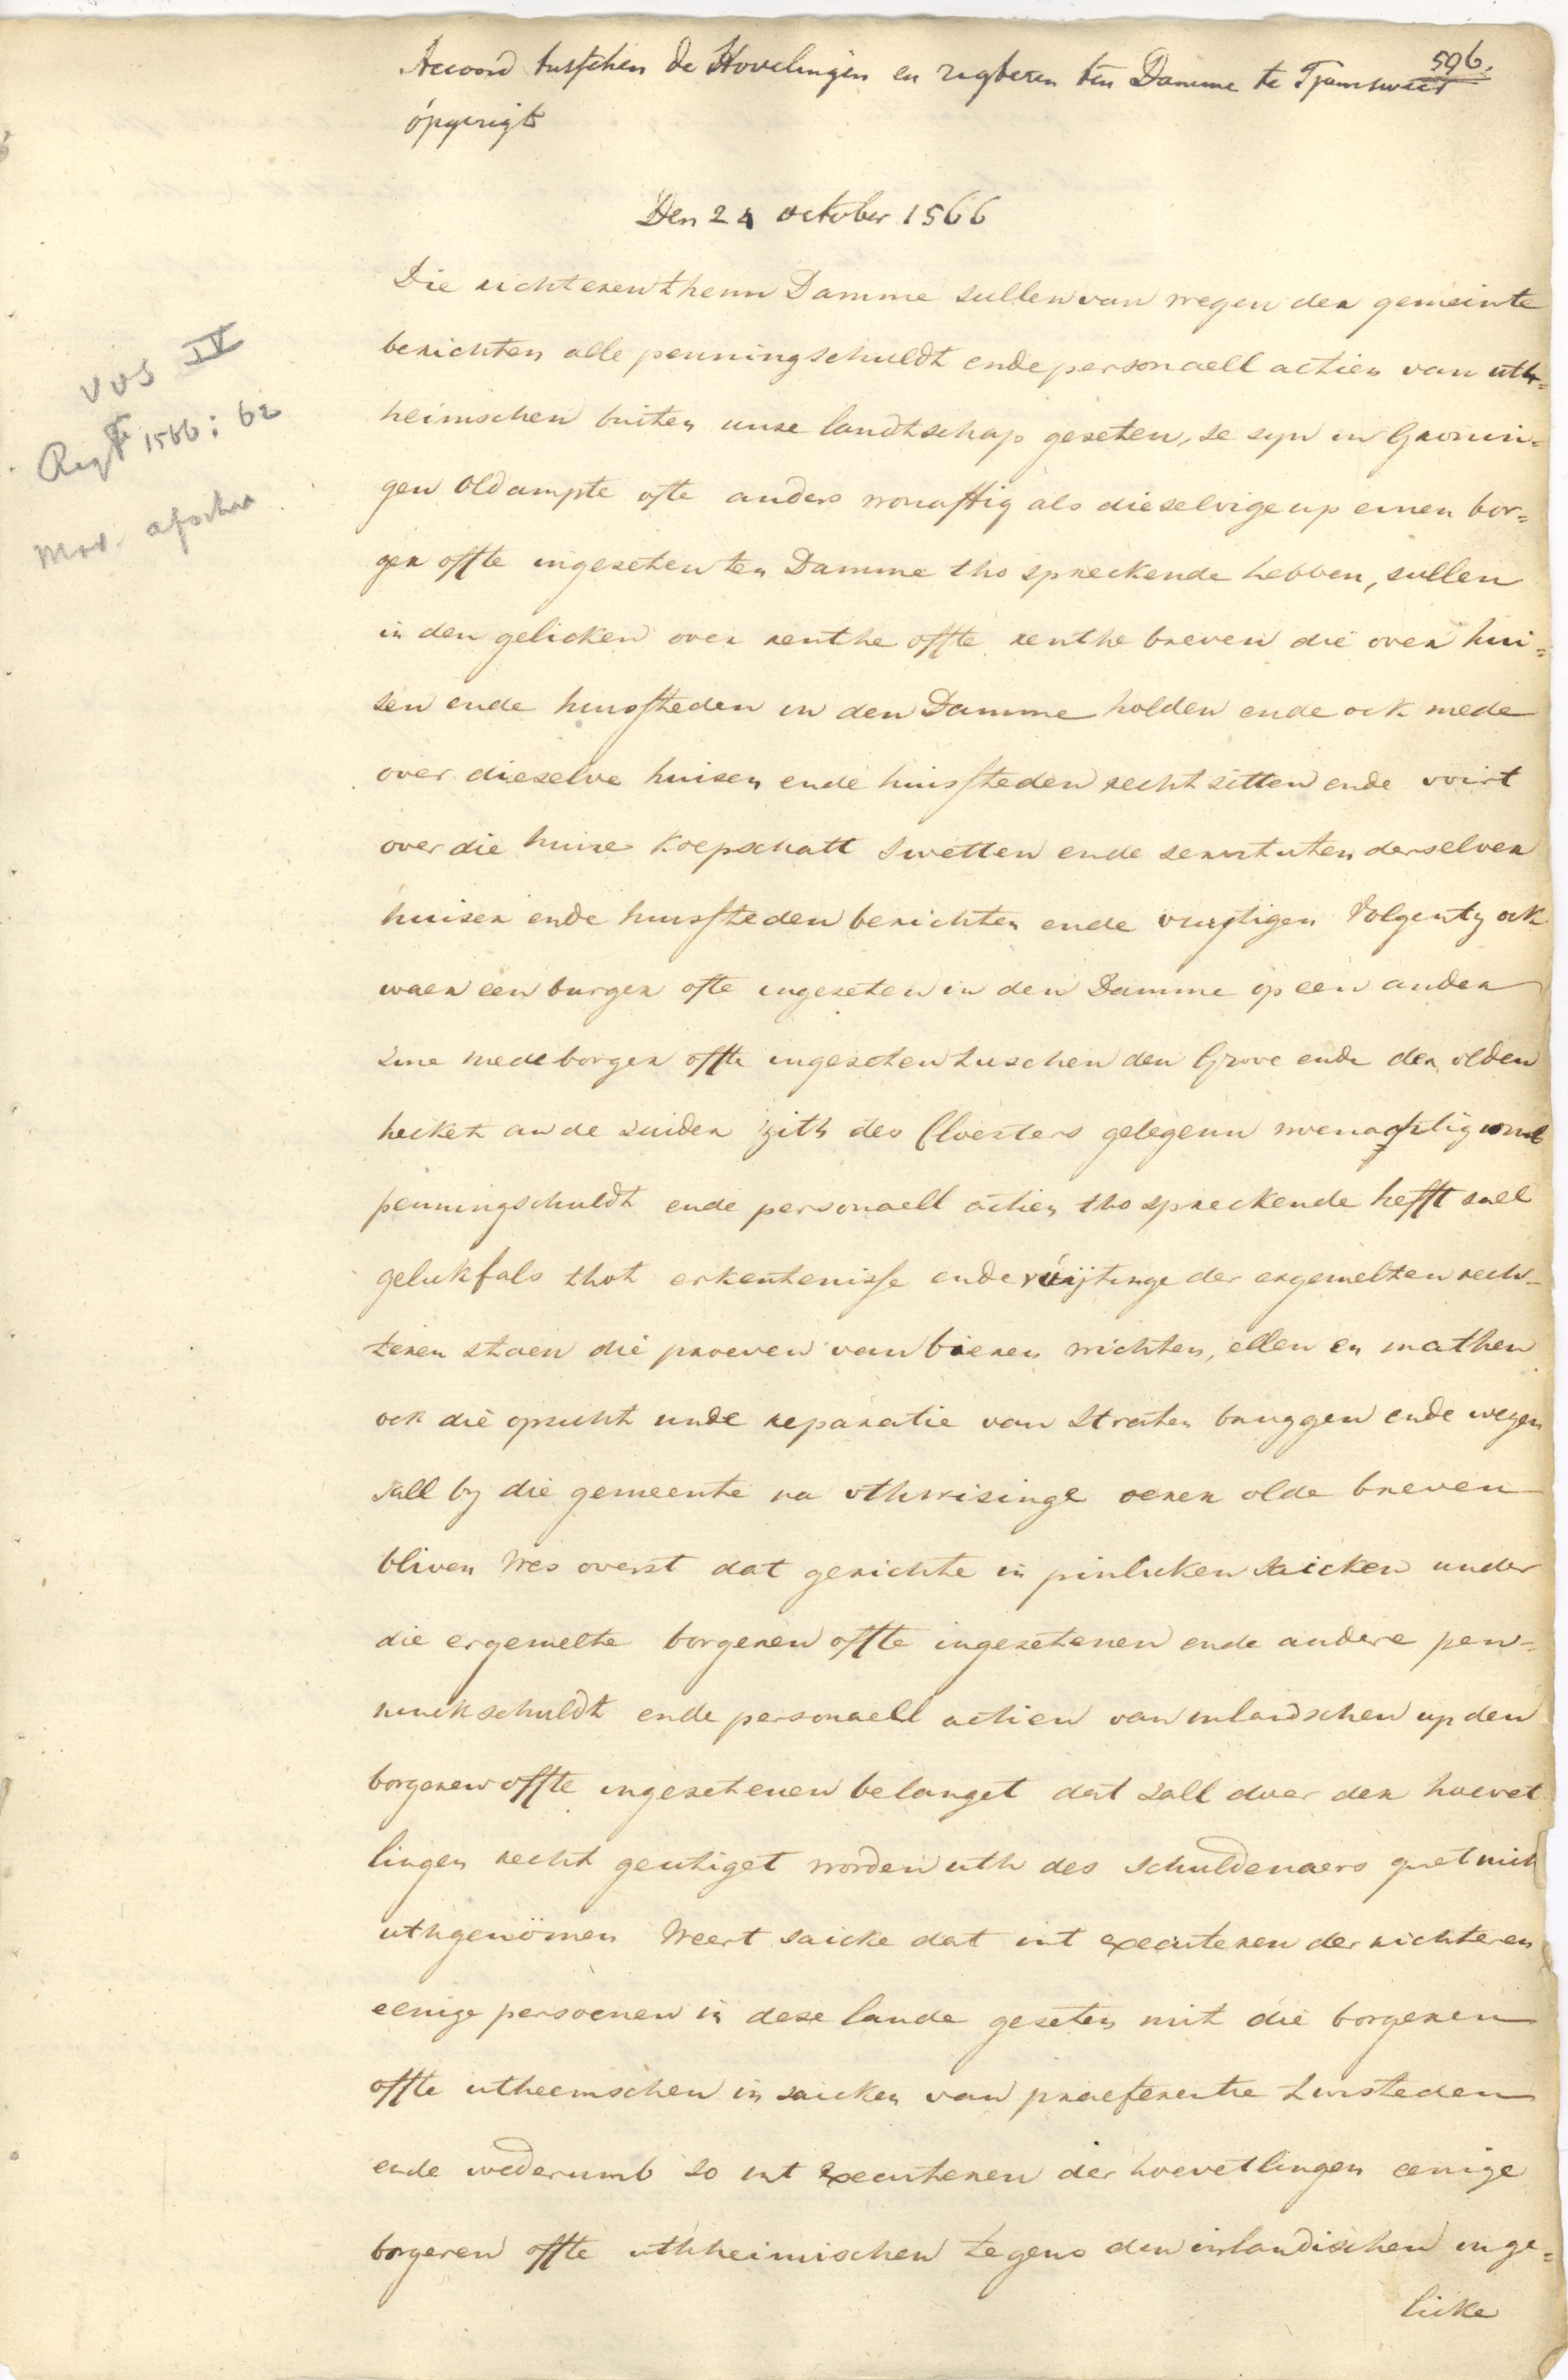 596.
Accoord tusschen de Hovelingen en regteren ten Damme te Tjamsweer
opgerigt
Den 24 october 1566
Die richteren thenn Damme sullen van wegen der gemeinte
berichten alle penningschuldt ende personaell actien van uth-
heimschen buiten unse landtschap geseten, se syn in Gronin-
gen Oldampte ofte anders wonafftig als dieselvige up einen bor-
ger offte ingeseten ten Damme tho spreckende hebben, sullen
in den gelicken over renthe offte renthe breven die over hui-
sen ende huussteden in den Damme holden ende ock mede
over dieselve huisen ende huissteden recht sitten ende voirt
over die huire koepschatt swetten ende servituten derselver
huiser ende huussteden berichten ende Volgentz ock
waer een burger ofte ingeseten in den Damme op een ander
sine mede borger offte ingeseten tuschen den Grove ende der olden
hecket an de suider zith des Cloesters gelegenn woenachtig
penningschuldt ende personaell actien tho spreckende hefft sael
gelickfals thot erkentenisse ende der ergemelten rech-
teren staen die proeven van bieren wichten, ellen en mathen
ock die opsicht unde reparatie van Straten bruggen ende wegen
sall by die gemeente na uthwisinge oerer olde breven
bliven Wes overst dat gerichte in pinlicken saicken under
die ergemelte borgeren offte ingesetenen ende andere pen-
ninckschuldt ende personaell actien van inlandschen up den
borgeren offte ingesetenen belanget dat sall doer der hoevet
lingen recht geutiget worden uth des schuldenaers guet nich
uthgenömen Weert saicke dat int executeren der richteren
eenige persoenen in dese lande geseten mit die borgeren
offte utheemschen in saicken van praeferentie twisteden
ende wederumb so int executeren der hoevetlingen eenige
borgeren offte uthheimischen tegens den inlandischen inge-
licke
VVS IV
Regt 1566: 62
Mod. afschr